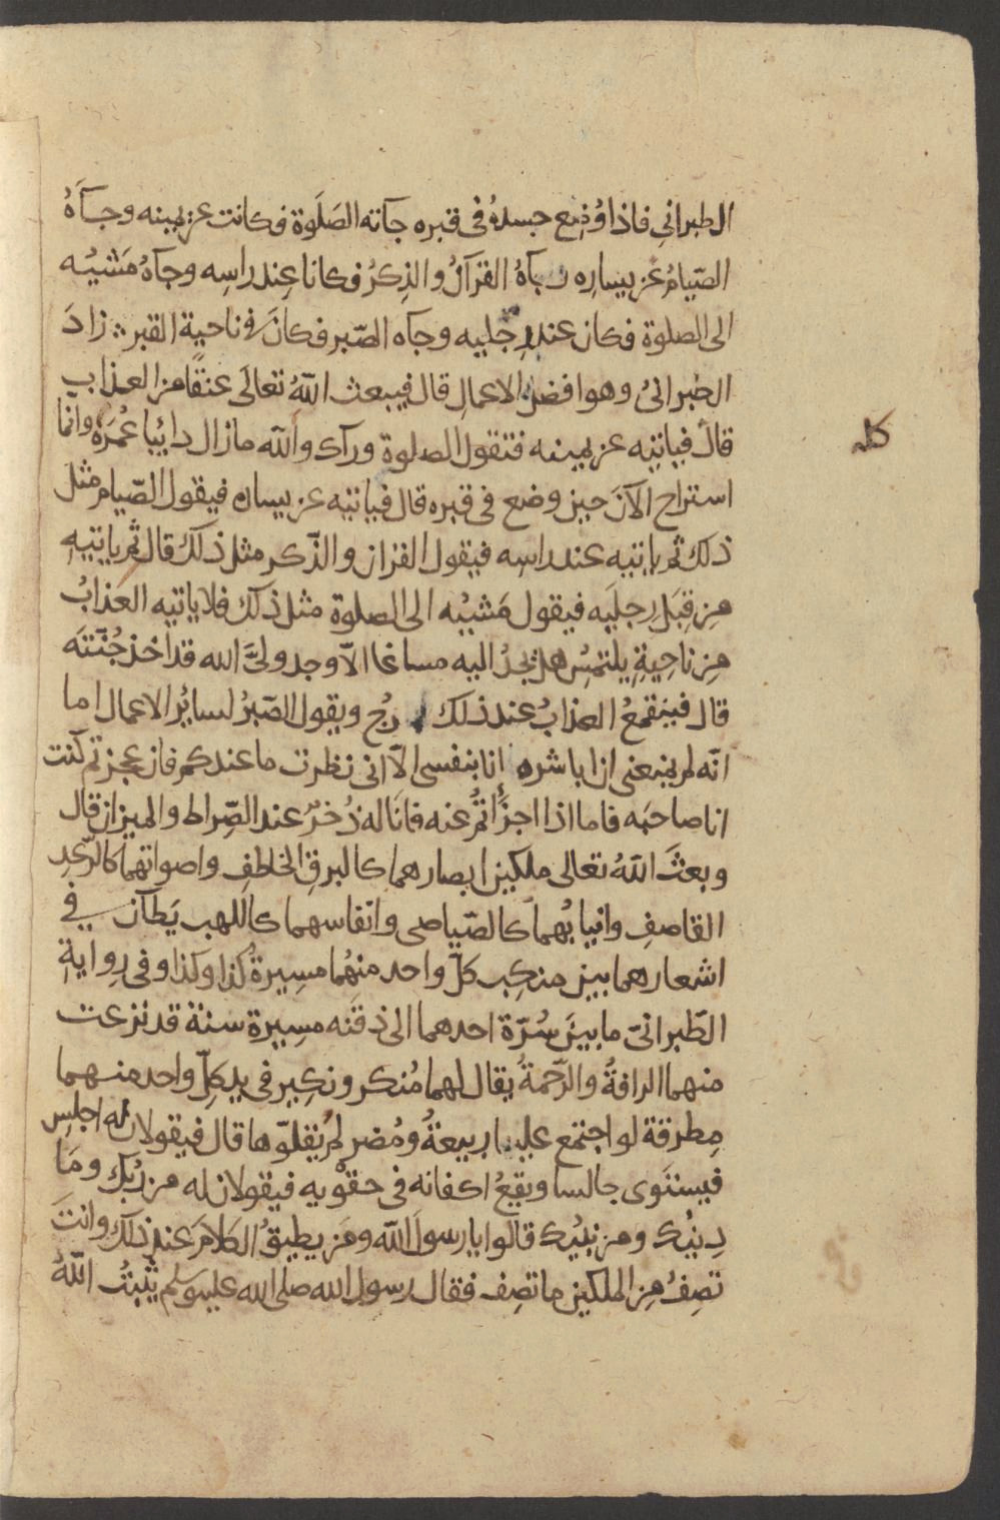 الطبراني فاذا وُضِع جسدهُ فى قبره جآته الصَلَوة فكانت عن يمينه وجآهُ
الصّيامُ عن يساره وجآهُ القرآنُ والذِكرُ فكانا عِند راسِه وجآهُ مَشيُه
الى الصلوة فكان عند رجليه وجآه الصّبر فكانَ فى ناحية القبر زادَ
الطبرانىُ وهو افضل الاعمالِ قال فيبعث اللّهُ تعالَى عنقًا من العذاب
كله
قالَ فياتِيه عن يمينه فتقول الصلوة ورآك واللّه مازال دائبا عُمرَهُ وانّما
استراح الآنَ حين وضع فى قبره قال فياتيه عن يساره فيقول الصّيام مثلَ
ذلك ثم ياتيه عند راسِه فيقول القران والذّكر مثل ذلك قال ثم ياتيهِ
مِن قِبَلِ رجلَيه فيقول مَشيُه الى الصلوة مثل ذلك فلا ياتيه العَذابُ
مِن ناحيةٍ يلتمِسُ هل يجدُ اليه مساغا الاّ وجد ولىَّ الله قد اخذ جُنّتَه
قال فينقمعُ العذابُ عند ذلك ويقول الصّبرُ لسائر الاعمال اما
انّه لم يمنعنى ان اباشره انا بنفسى الاّ انى نظرت ما عندكم فان عجزتم كنت
انا صاحبَه فاما اذا اجزَأتُم عنه فانَا له ذُخرٌ عند الصِّراط والميزان قال
وبعثَ اللّهُ تعالى ملكين ابصارهما كالبرقِ الخاطفِ واصواتهما كالرّعدِ
القاصفِ وانيابُهما كالصّياصى وانفاسهما كاللهب يَطآن فى
اشعارهما بين منكِب كلّ واحد منهُما مسِيرةُ كذا وكذا وفى رِوايةِ
الطّبرانىّ ما بينَ سُرّة احدهما الى ذقنه مسِيرة سنة قد نزعت
منهما الرافةُ والرّحمةُ يقال لهما مُنكر ونكِير فى يد كلِّ واحد منهما
مِطرقة لو اجتمع عليها ربيعةُ ومُضر لم يُقلّوها قال فيقولان له اجلِس
فيستَوى جالسا ويقعُ اكفانه فى حقوَيه فيقولان له من ربُّك ومَا
دِينُك ومن نبيُك قالوا يا رسول اللّه ومَن يطيقُ الكلامَ عند ذلك وانتَ
تصِفُ مِن الملكين ما تصِف فقال رسول الله صلى الله عليه وسلم يثبّتُ اللّهُ